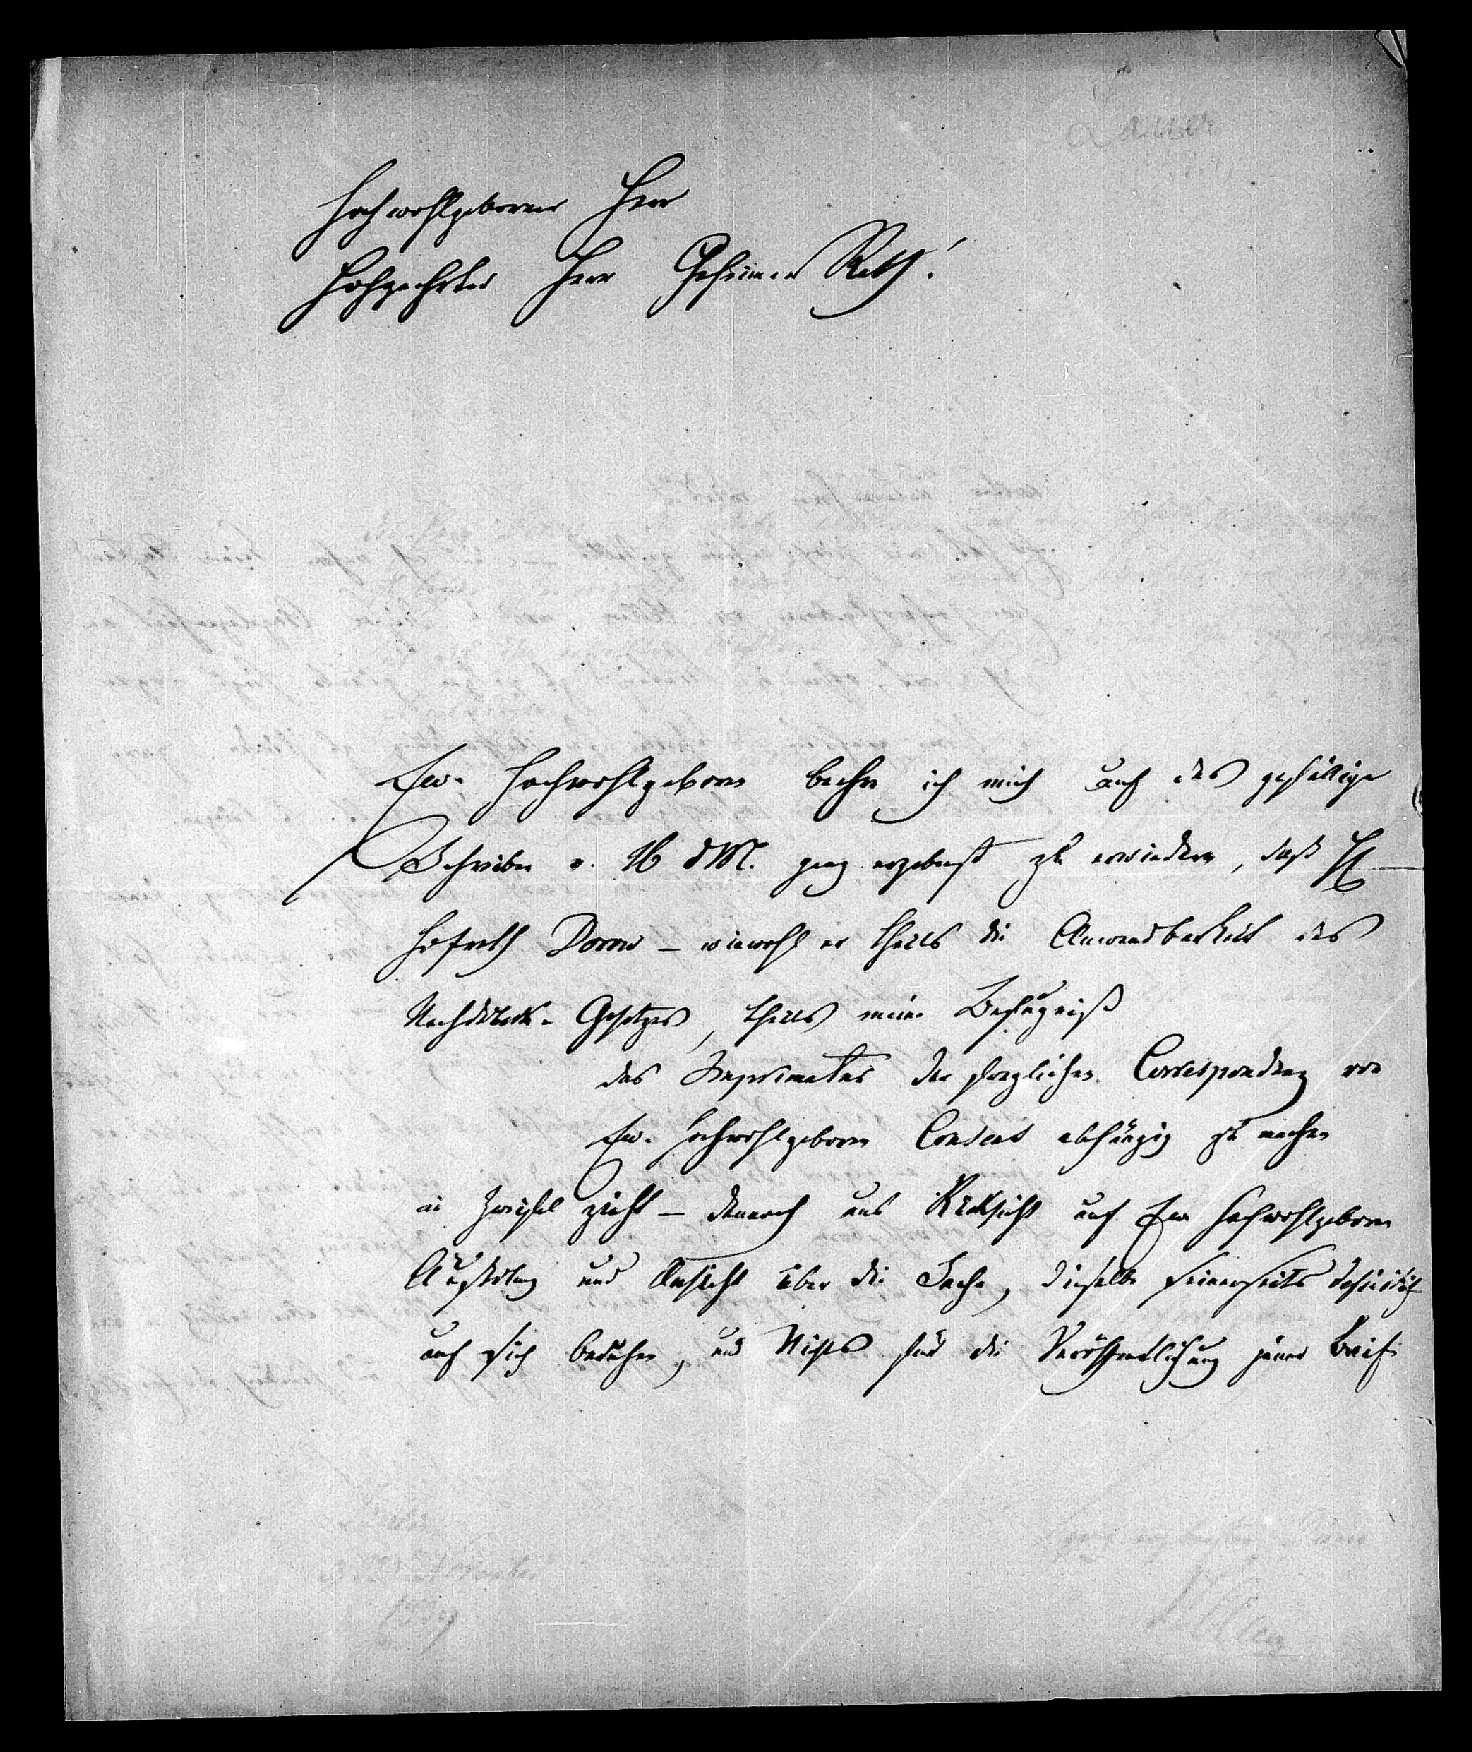 Hochwohlgeborner Herr
Hochgeehrter Herr Geheimer Rath!
Ew. Hochwohlgeboren beehre ich mich auf das gefällige
Schreiben v. 16 d M. ganz ergebenst zu erwiedern, daß H
Hofrath Dorow – wiewohl er theils die Anwendbarkeit des
Nachdruck-Gesetzes, theils meine Befugniß
das Imprimatur der fraglichen Correspondenz von
Ew. Hochwohlgeboren Consens abhängig zu machen
in Zweifel zieht – dennoch aus Rücksicht auf Ew Hochwohlgeboren
und Ansicht über die Sache, dieselbe seinerseits
auf sich beruhen, und Nichts für die Veröffentlichung jener Briefe